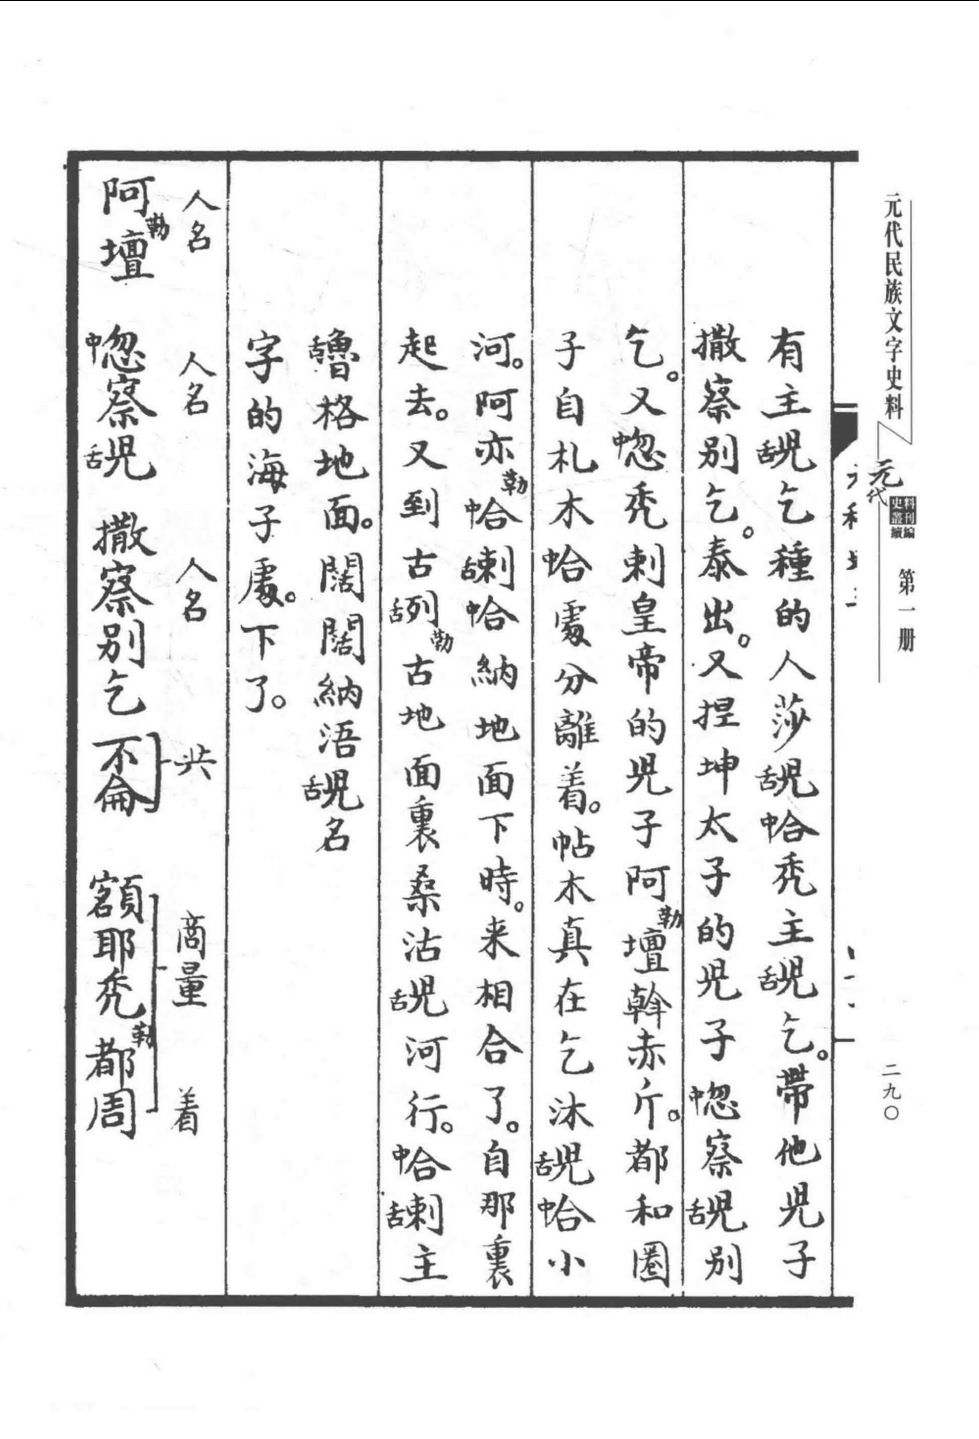 元代民族文字史料
元代史料叢刊續編
第一册
二九〇
有主舌兒乞種的人莎舌兒中合禿主舌兒乞。帶他兒子
撒察別乞。泰出。又捏坤太子的兒子中忽察舌兒別
乞。又中忽禿剌皇帝的兒子阿勒壇斡赤斤。都和圈
子自札木中合處分離着。帖木真在乞沐舌兒中合小
河。阿亦勒中合舌剌中合納地面下時。来相合了。自那裏
起去。又到古舌列勒古地面裏桑沽舌兒河行。中合舌剌主
舌魯格地面。闊闊納浯舌兒名
字的海子處。下了。
人名 人名 人名 共 商量 着
阿勒壇 中忽察舌兒 撒察別乞 不侖 額耶禿勒都周